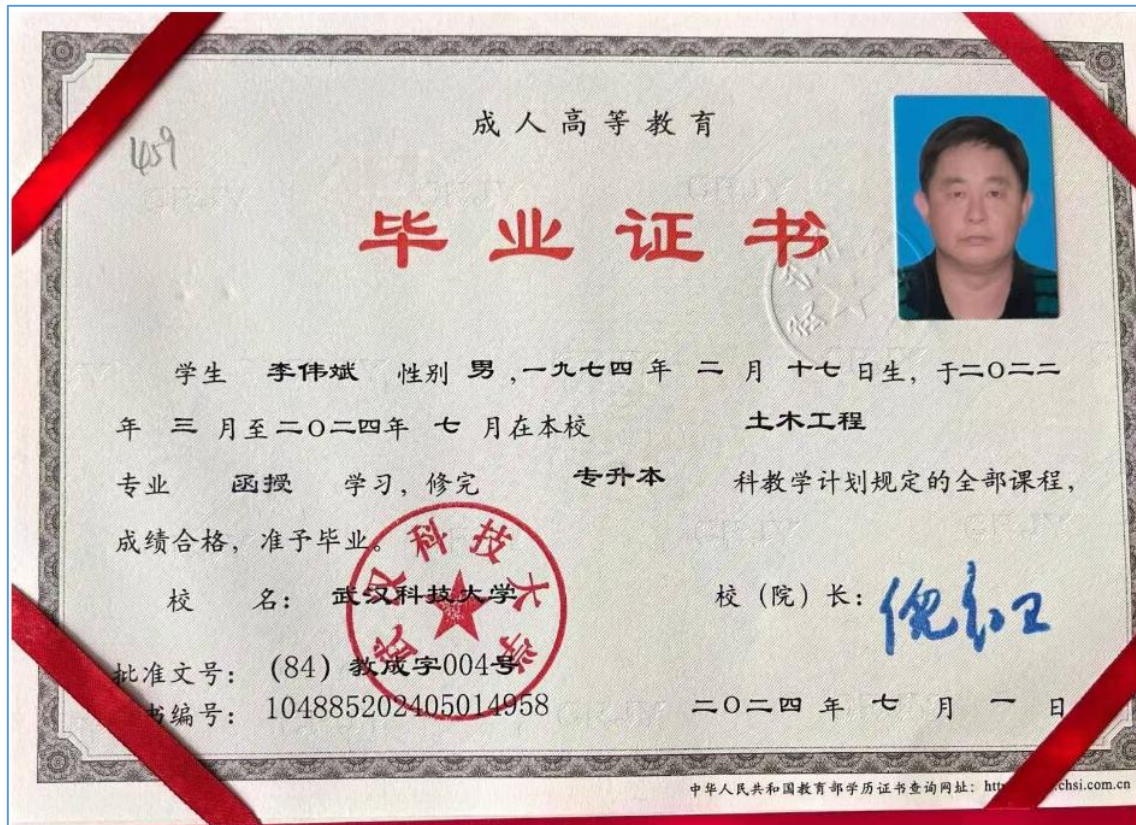 成人高等教育
459
毕业证书
学生 李伟斌 性别 男 ,一九七四 年 二 月 十七 日生, 于二〇二二
年 三 月至二〇二四年 七 月在本校 土木工程
专业 函授 学习, 修完 专升本 科教学计划规定的全部课程,
成绩合格, 准予毕业。
武汉科技大学
校 名: 武汉科技大学 校（院）长:
批准文号: (84) 教成字004号
书编号: 104885202405014958 二〇二四 年 七 月 一 日
中华人民共和国教育部学历证书查询网址: htt chsi.com.cn